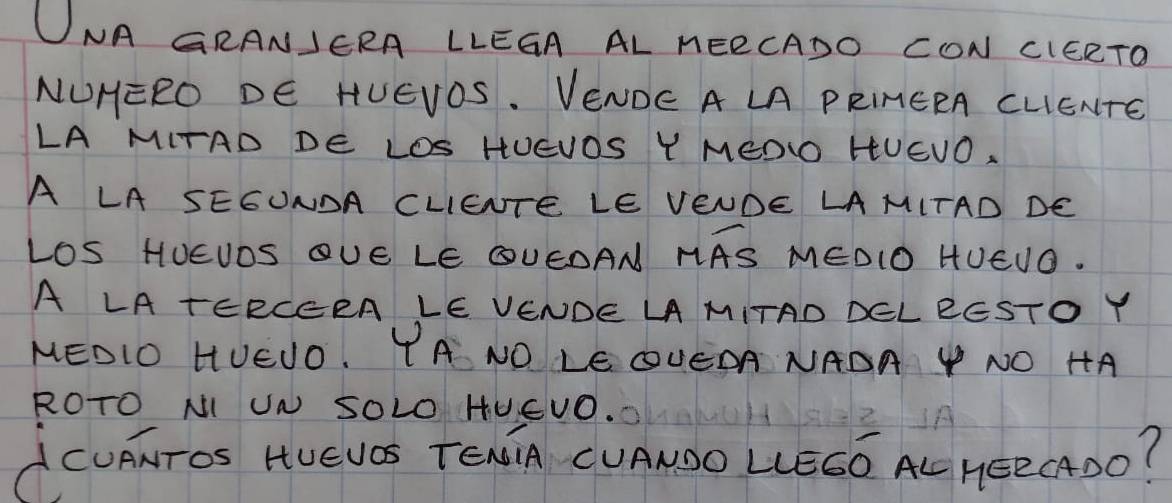 UNA GRANJERA LLEGA AL MERCADO CON CIERTO
NUMERO DE HUEVOS. VENDE A LA PRIMERA CLIENTE
LA MITAD DE LOS HUEVOS Y MEDIO HUEVO.
A LA SEGUNDA CLIENTE LE VENDE LA MITAD DE
LOS HUEVOS QUE LE QUEDAN MÁS MEDIO HUEVO.
A LA TERCERA LE VENDE LA MITAD DEL RESTO Y
MEDIO HUEVO. YA NO LE QUEDA NADA Y NO HA
ROTO NI UN SOLO HUEVO.
¿CUÁNTOS HUEVOS TENÍA CUANDO LLEGÓ AL MERCADO?